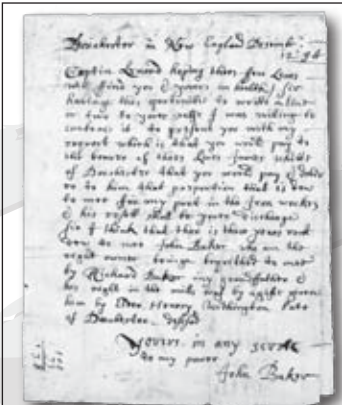 Dorchester in New England Desember:
12: 94
Captin Leonard hoping thees few Lines
will find you & yours in health / Sir
having this oportunitie to write a line
or two to your selfe I was willing to
imbrace it to present you with my
request which is that you would pay to
the bearer of these lines James white
of Dorchester that you would pay & deliver
to him that proportion that is dew
to mee for my part in the Iron workes
& his receit shall be your discharge
Sir I think that ther is three years rent
dew to mee John Baker who am the
right owner being bequethed to mee
by Richard Baker my grandfather &
his right in the will was by a gift given
him by Henery Withington late
of Dorchester desesed
Yours in any service
to my power
John Baker